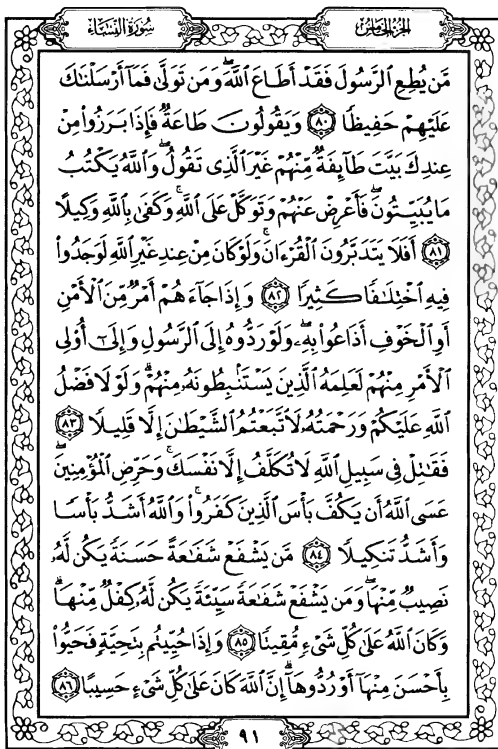 الجزء الخامس
سورة النساء
مَّن يُطِعِ ٱلرَّسُولَ فَقَدْ أَطَاعَ ٱللَّهَ ۖ وَمَن تَوَلَّىٰ فَمَآ أَرْسَلْنَٰكَ
عَلَيْهِمْ حَفِيظًا ۝٨٠ وَيَقُولُونَ طَاعَةٌ فَإِذَا بَرَزُوا۟ مِنْ
عِندِكَ بَيَّتَ طَآئِفَةٌ مِّنْهُمْ غَيْرَ ٱلَّذِى تَقُولُ ۖ وَٱللَّهُ يَكْتُبُ
مَا يُبَيِّتُونَ ۖ فَأَعْرِضْ عَنْهُمْ وَتَوَكَّلْ عَلَى ٱللَّهِ ۚ وَكَفَىٰ بِٱللَّهِ وَكِيلًا
۝٨١ أَفَلَا يَتَدَبَّرُونَ ٱلْقُرْءَانَ ۚ وَلَوْ كَانَ مِنْ عِندِ غَيْرِ ٱللَّهِ لَوَجَدُوا۟
فِيهِ ٱخْتِلَٰفًا كَثِيرًا ۝٨٢ وَإِذَا جَآءَهُمْ أَمْرٌ مِّنَ ٱلْأَمْنِ
أَوِ ٱلْخَوْفِ أَذَاعُوا۟ بِهِۦ ۖ وَلَوْ رَدُّوهُ إِلَى ٱلرَّسُولِ وَإِلَىٰٓ أُو۟لِى
ٱلْأَمْرِ مِنْهُمْ لَعَلِمَهُ ٱلَّذِينَ يَسْتَنۢبِطُونَهُۥ مِنْهُمْ ۗ وَلَوْلَا فَضْلُ
ٱللَّهِ عَلَيْكُمْ وَرَحْمَتُهُۥ لَٱتَّبَعْتُمُ ٱلشَّيْطَٰنَ إِلَّا قَلِيلًا ۝٨٣
فَقَٰتِلْ فِى سَبِيلِ ٱللَّهِ لَا تُكَلَّفُ إِلَّا نَفْسَكَ ۚ وَحَرِّضِ ٱلْمُؤْمِنِينَ ۖ
عَسَى ٱللَّهُ أَن يَكُفَّ بَأْسَ ٱلَّذِينَ كَفَرُوا۟ ۚ وَٱللَّهُ أَشَدُّ بَأْسًا
وَأَشَدُّ تَنكِيلًا ۝٨٤ مَّن يَشْفَعْ شَفَٰعَةً حَسَنَةً يَكُن لَّهُۥ
نَصِيبٌ مِّنْهَا ۖ وَمَن يَشْفَعْ شَفَٰعَةً سَيِّئَةً يَكُن لَّهُۥ كِفْلٌ مِّنْهَا ۗ
وَكَانَ ٱللَّهُ عَلَىٰ كُلِّ شَىْءٍ مُّقِيتًا ۝٨٥ وَإِذَا حُيِّيتُم بِتَحِيَّةٍ فَحَيُّوا۟
بِأَحْسَنَ مِنْهَآ أَوْ رُدُّوهَآ ۗ إِنَّ ٱللَّهَ كَانَ عَلَىٰ كُلِّ شَىْءٍ حَسِيبًا ۝٨٦
٩١